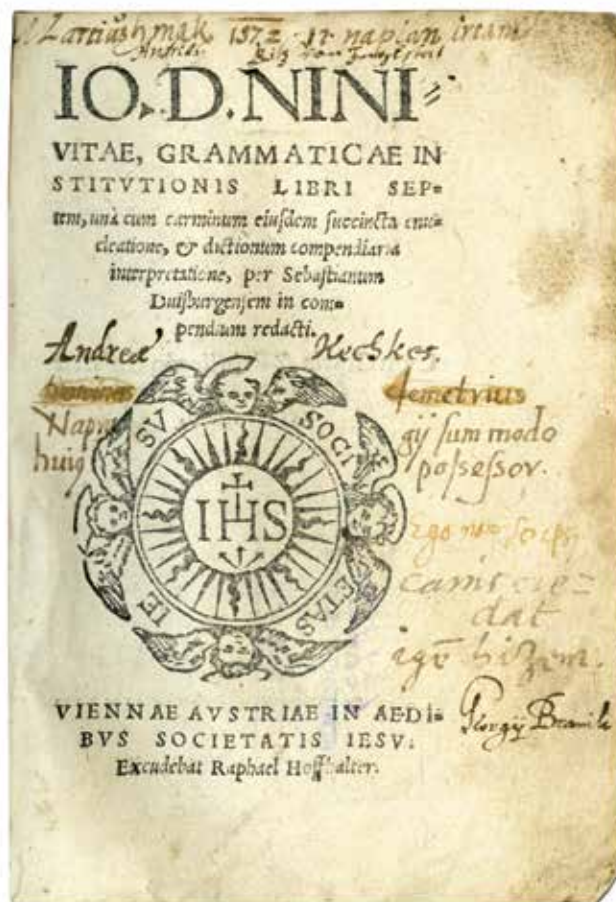 Martiusnak 1572 17 napian irtam
IO. D. NINI⸗
VITAE, GRAMMATICAE IN
STITVTIONIS LIBRI SEP⸗
tem, unà cum carminum eiusdem succincta enu⸗
cleatione, & dictionum compendiaria
interpretatione, per Sebastianum
Duisburgensem in com⸗
pendium redacti.
Andreæ Kechkes.
demetrius
Nap
huig
gÿ sum modo
possessor.
SOCI
ETAS
IE
SV
IHS
dat
Georgÿ
VIENNAE AVSTRIAE IN AEDI⸗
BVS SOCIETATIS IESV.
Excudebat Raphael Hoffhalter.